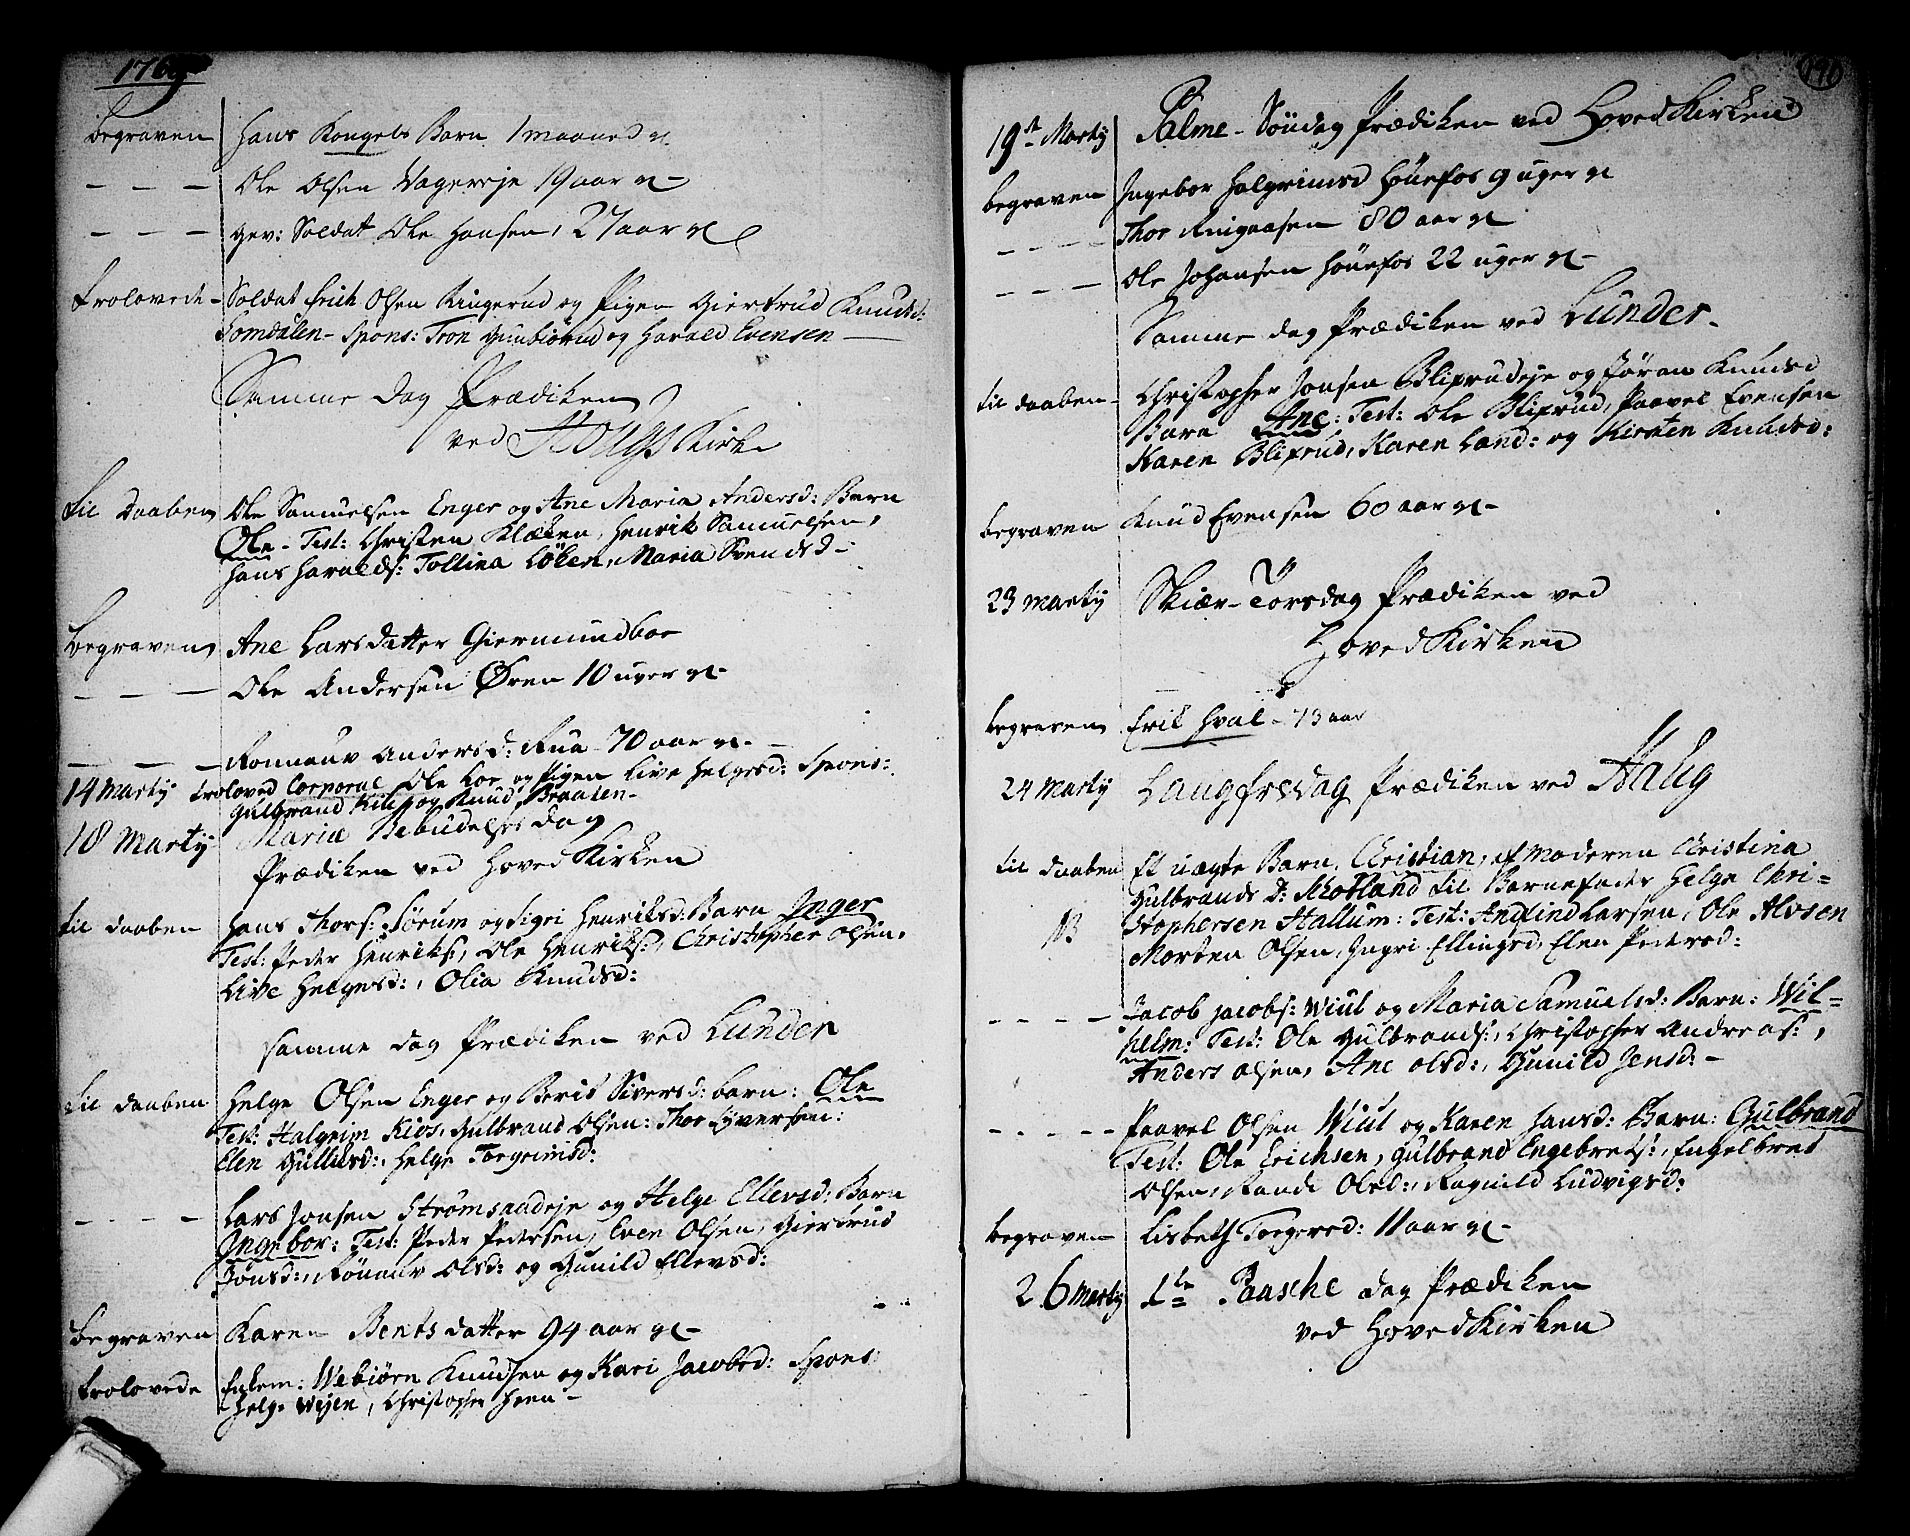 1769
begraven Hans Kongels Barn 1 maaned gl
- - - Ole Olsen Vagereje 19 aar gl-
- - - gev: Soldat Ole Hansen, 27 aar gl
trolovede- Soldat Erich Olsen Ringerud og Pigen Giertrud Knudsd:
Somdalen- Spons: Tron Gunbiørud og Harald Evensen
Samme Dag Prædiken
ved Hougs Kirke
til Daaben Ole Samuelsen Enger og Ane Maria Andersd: Barn
Ole- Test: Christen Klækken, Henrik Samuelsen,
Hans Haralds: Tolline Løken, Maria Svendsd-
Begraven Ane Larsdatter Giermundboe
- - - Ole Andersen Øren 10 uger gl-
- - - Ronnauv Andersd: Rua 70 aar gl-
14 Martij troloved Corporal Ole Loe og Pigen Live Helgesd: Spons:
Gulbrand og Knud Braaten-
18 Martij Mariæ Bebudelses dag
Prædiken ved Hoved Kirken
til daaben Hans Thors: Sørum og Sigri Henriksd: Barn Inger
Test: Peder Henriks:, Ole Henriks:, Christopher Olsen,
Live Helgesd:, Olia Knudsd:
samme dag Prædiken ved Lunder
til daaben Helge Olsen Enger og Berit Siversd: barn: Ole
Test: Halgrim Kios, Gulbrand Olsen: Thor Syversen:
Elen Gullusd:, Helge Torgrimsd:
- - - - Lars Jonsen Strømsaadeje og Helge Ellevsd: Barn
Ingebor: Test: Peder Pedersen, Even Olsen, Giertrud
Jonsd:, Rønauv Olsd: og Gunild Ellevsd:
begraven Karen Bentsdatter 94 aar gl-
trolovede Enkem: Webiørn Knudsen og Kari Jacobsd: Spons:
Helge Wejen, Christopher Heen-
190
19de Martij Palme-Søndag Prædiken ved Hoved Kirken
begraven Ingebor Halgrimsd Hønefos 9 uger gl
- - - - Thor Ringaasen 80 aar gl
- - - - Ole Johansen Hønefos 22 uger gl-
Samme dag Prædiken ved Lunder-
til daaben- Christopher Jonsen Blixrudeje og Jøran Knudsd
Barn Ane: Test: Ole Blixrud, Paavel Evensen
Karen Blixrud, Karen Land: og Kirsten Knudsd:
begraven Knud Evensen 60 aar gl-
23 Martij Skiær-Torsdag Prædiken ved
Hoved Kirken
begraven Erik Hval-73 aar
24 Martij Langfredag Prædiken ved Haug
til daaben Et uægte Barn, Christian, af Moderen Christina
Gulbrands D: Skotland til Barnefader Helge Chri=
NB stophersen Hallum: Test: Anglind Larsen, Ole Alvsen
Morten Olsen, Ingri Ellingsd, Elen Pedersd:
- - - - Jacob Jacobs: Wiul og Maria Samuelsd: Barn: Wil=
helm: Test: Ole Gulbrands:, Christopher Andreas:,
Anders Olsen, Ane Olsd:, Gunild Jensd:-
- - - - - Paavel Olsen Wiul og Karen Hansd: Barn: Gulbrand
Test: Ole Erichsen, Gulbrand Engebrets:, Engelbret
Olsen, Randi Olsd:, Ragnild Ludvigsd:
begraven Lisbeth Torgersd: 11 aar gl-
26 Martij 1te Paasche dag Prædiken
ved Hoved Kirken